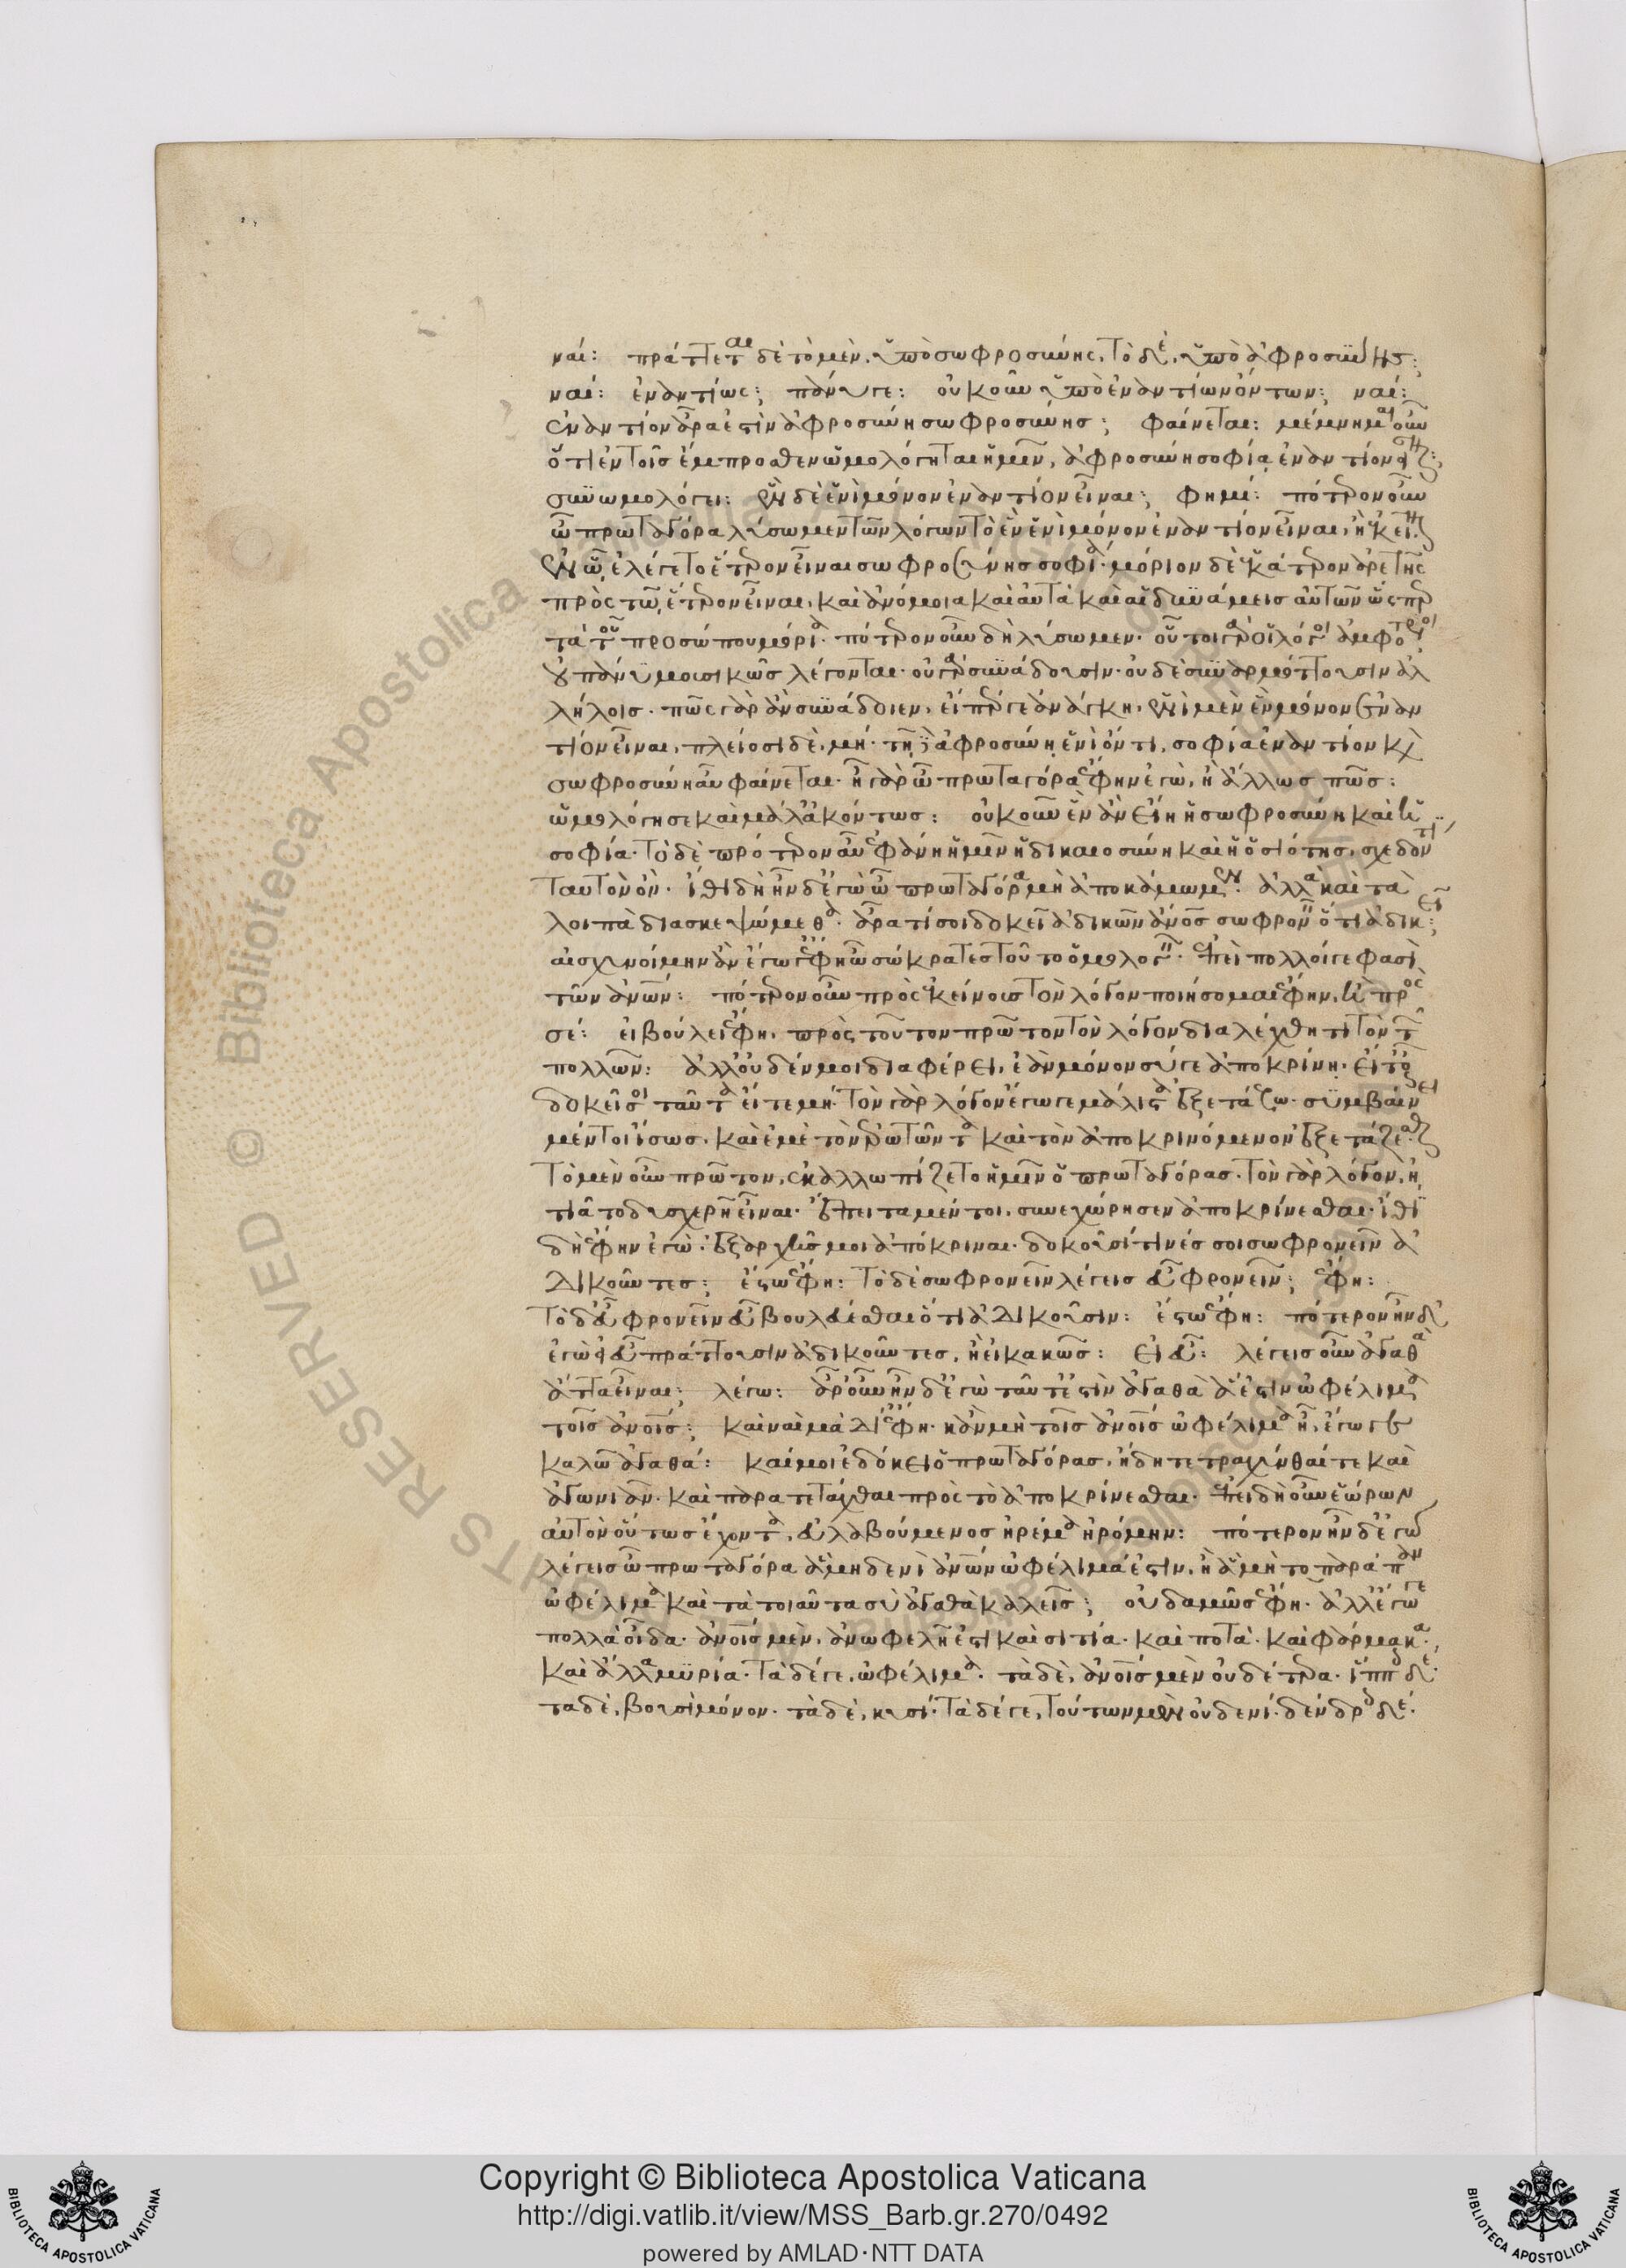 ναί: πράττεται δὲ τὸ μὲν, ὑπὸ σωφροσύνης, τὸ δὲ, ὑπὸ ἀφροσύνης:
ναί: ἐναντίως; πάνυ γε: οὐκοῦν ὑπὸ ἐναντίων ὄντων; ναί:
ἐναντίον ἄρα ἐστὶν ἀφροσύνη σωφροσύνης; φαίνεται: μέμνησαι οὖν
ὅτι ἐν τοῖς ἔμπροσθεν ὡμολόγηται ἡμῖν, ἀφροσύνη σοφίᾳ ἐναντίον εἶναι;
συνωμολόγει: ἓν δὲ ἑνὶ μόνον ἐναντίον εἶναι; φημί: πότερον οὖν
ὦ πρωταγόρα λύσωμεν τῶν λόγων τὸ ἓν ἑνὶ μόνον ἐναντίον εἶναι, ἢ κεῖνον
ἐν ᾧ ἐλέγετο ἕτερον εἶναι σωφροσύνης σοφία· μόριον δὲ ἑκάτερον ἀρετῆς
πρὸς τῷ ἕτερον εἶναι, καὶ ἀνόμοια καὶ αὐτὰ καὶ αἱ δυνάμεις αὐτῶν ὥσπερ
τὰ τοῦ προσώπου μόρια· πότερον οὖν δὴ λύσωμεν· οὗτοι γὰρ οἱ λόγοι ἀμφότεροι
οὐ πάνυ μουσικῶς λέγονται· οὐ γὰρ συνάδουσιν· οὐδὲ συναρμόττουσιν ἀλ
λήλοις· πῶς γὰρ ἂν συνάδοιεν, εἴπερ γε ἀνάγκη, ἑνὶ μὲν ἓν μόνον ἐναν
τίον εἶναι, πλείοσι δὲ, μή· τῇ δὲ ἀφροσύνῃ ἑνὶ ὄντι, σοφία ἐναντίον καὶ
σωφροσύνη αὖ φαίνεται· ἦ γὰρ ὦ πρωταγόρα ἔφην ἐγὼ, ἢ ἄλλως πως:
ὡμολόγησε καὶ μάλα ἀκόντως: οὐκοῦν ἓν ἂν εἴη ἡ σωφροσύνη καὶ ἡ
σοφία· τὸ δὲ πρότερον αὖ ἐφάνη ἡμῖν ἡ δικαιοσύνη καὶ ἡ ὁσιότης, σχεδόν τι
ταυτὸν ὄν· ἴθι δὴ ἦν δ' ἐγὼ ὦ πρωταγόρα μὴ ἀποκάμωμεν· ἀλλὰ καὶ τὰ
λοιπὰ διασκεψώμεθα· ἆρα τίς σοι δοκεῖ ἀδικῶν ἄνος σωφρονεῖν ὅτι ἀδικεῖ;
αἰσχυνοίμην ἂν ἔγωγ' ἔφη ὦ σώκρατες τοῦτο ὁμολογεῖν· ἐπεὶ πολλοί γε φασὶ
τῶν ἀνων: πότερον οὖν πρὸς ἐκείνους τὸν λόγον ποιήσομαι ἔφην, ἢ πρὸς
σέ: εἰ βούλει ἔφη, πρὸς τοῦτον πρῶτον τὸν λόγον διαλέχθητι τὸν τῶν
πολλῶν: ἀλλ' οὐδέν μοι διαφέρει, ἐὰν μόνον σύ γε ἀποκρίνῃ, εἴτ' οὖν
δοκεῖ σοι ταῦτα εἴτε μή· τὸν γὰρ λόγον ἔγωγε μάλιστα ἐξετάζω· συμβαίνει
μέντοι ἴσως, καὶ ἐμὲ τὸν ἐρωτῶντα καὶ τὸν ἀποκρινόμενον ἐξετάζεσθαι·
τὸ μὲν οὖν πρῶτον, ἐκαλλωπίζετο ἡμῖν ὁ πρωταγόρας· τὸν γὰρ λόγον, ᾐ
τιᾶτο δυσχερῆ εἶναι· ἔπειτα μέντοι, συνεχώρησεν ἀποκρίνεσθαι· ἴθι
δὴ ἔφην ἐγὼ· ἐξαρχῆς μοι ἀπόκριναι· δοκοῦσί τινές σοι σωφρονεῖν ἀ
δικοῦντες; ἔστω ἔφη: τὸ δὲ σωφρονεῖν λέγεις εὖ φρονεῖν; ἔφη:
τὸ δ' εὖ φρονεῖν εὖ βουλεύεσθαι ὅτι ἀδικοῦσιν: ἔστω ἔφη: πότερον ἦν δ'
ἐγὼ εἰ εὖ πράττουσιν ἀδικοῦντες, ἢ εἰ κακῶς: εἰ εὖ: λέγεις οὖν ἀγαθὰ
ἄττα εἶναι; λέγω: ἆρ' οὖν ἦν δ' ἐγὼ ταῦτ' ἐστὶν ἀγαθὰ ἅ ἐστιν ὠφέλιμα
τοῖς ἀνοις; καὶ ναὶ μὰ Δί' ἔφη· κἂν μὴ τοῖς ἀνοις ὠφέλιμα ᾖ, ἔγωγε
καλῶ ἀγαθά: καί μοι ἐδόκει ὁ πρωταγόρας, ἤδη τετραχύνθαί τε καὶ
ἀγωνιᾶν· καὶ παρατετάχθαι πρὸς τὸ ἀποκρίνεσθαι· ἐπειδὴ οὖν ἑώρων
αὐτὸν οὕτως ἔχοντα, εὐλαβούμενος ἠρέμα ἠρόμην: πότερον ἦν δ' ἐγὼ
λέγεις ὦ πρωταγόρα ἃ μηδενὶ ἀνων ὠφέλιμά ἐστιν, ἢ ἃ μὴ τὸ παράπαν
ὠφέλιμα καὶ τὰ τοιαῦτα σὺ ἀγαθὰ καλεῖς; οὐδαμῶς ἔφη· ἀλλ' ἔγωγε
πολλὰ οἶδα· ἀνοις μὲν, ἀνωφελῆ ἐστι καὶ σιτία· καὶ ποτὰ· καὶ φάρμακα·
καὶ ἄλλα μυρία· τὰ δέ γε, ὠφέλιμα· τὰ δὲ, ἀνοις μὲν οὐδέτερα· ἵπποις δέ·
τὰ δὲ, βουσὶ μόνον· τὰ δὲ, κυσί· τὰ δέ γε, τούτων μὲν οὐδενί· δένδροις δέ·
Copyright © Biblioteca Apostolica Vaticana
http://digi.vatlib.it/view/MSS_Barb.gr.270/0492
powered by AMLAD·NTT DATA